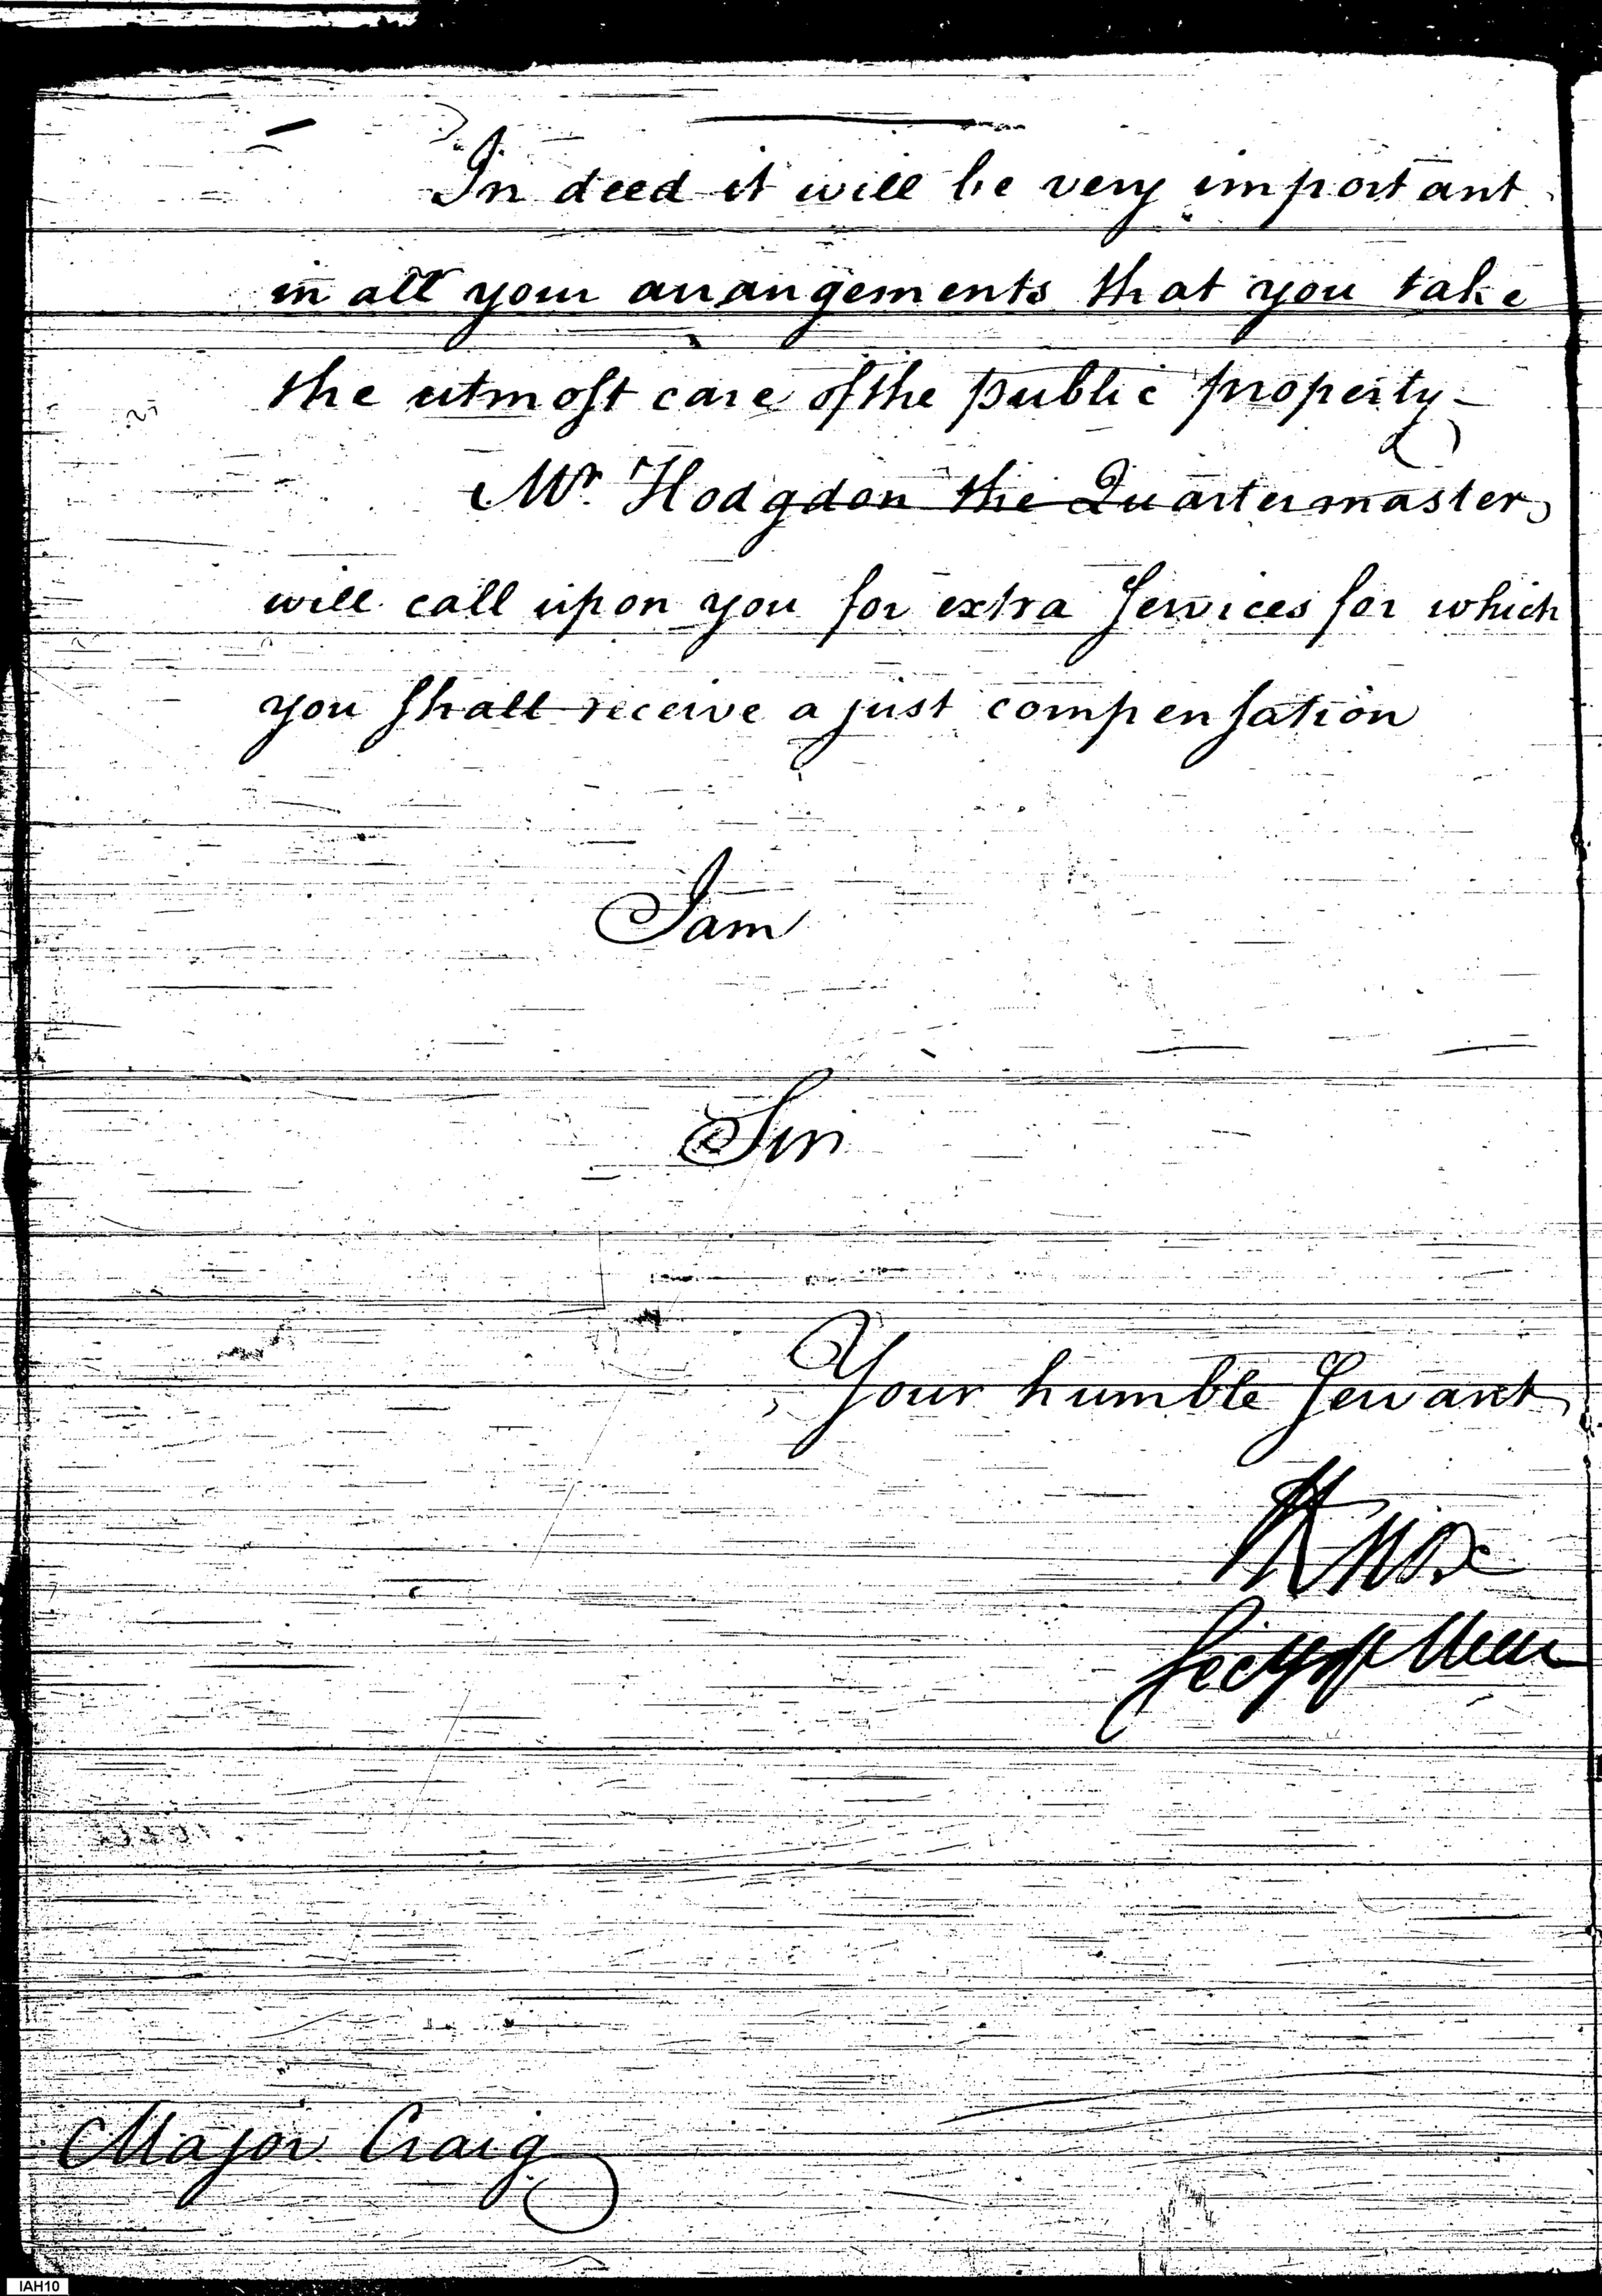 In deed it will be very important
in all your arangements that you take
the utmost care of the public property –
Mr. Hodgdon the Quartermaster,
will call upon you for extra Services for which
you shall receive a just compensation
I am
Sir
Your humble Servant
HKnox
Secy of War
Major Craig
IAH10